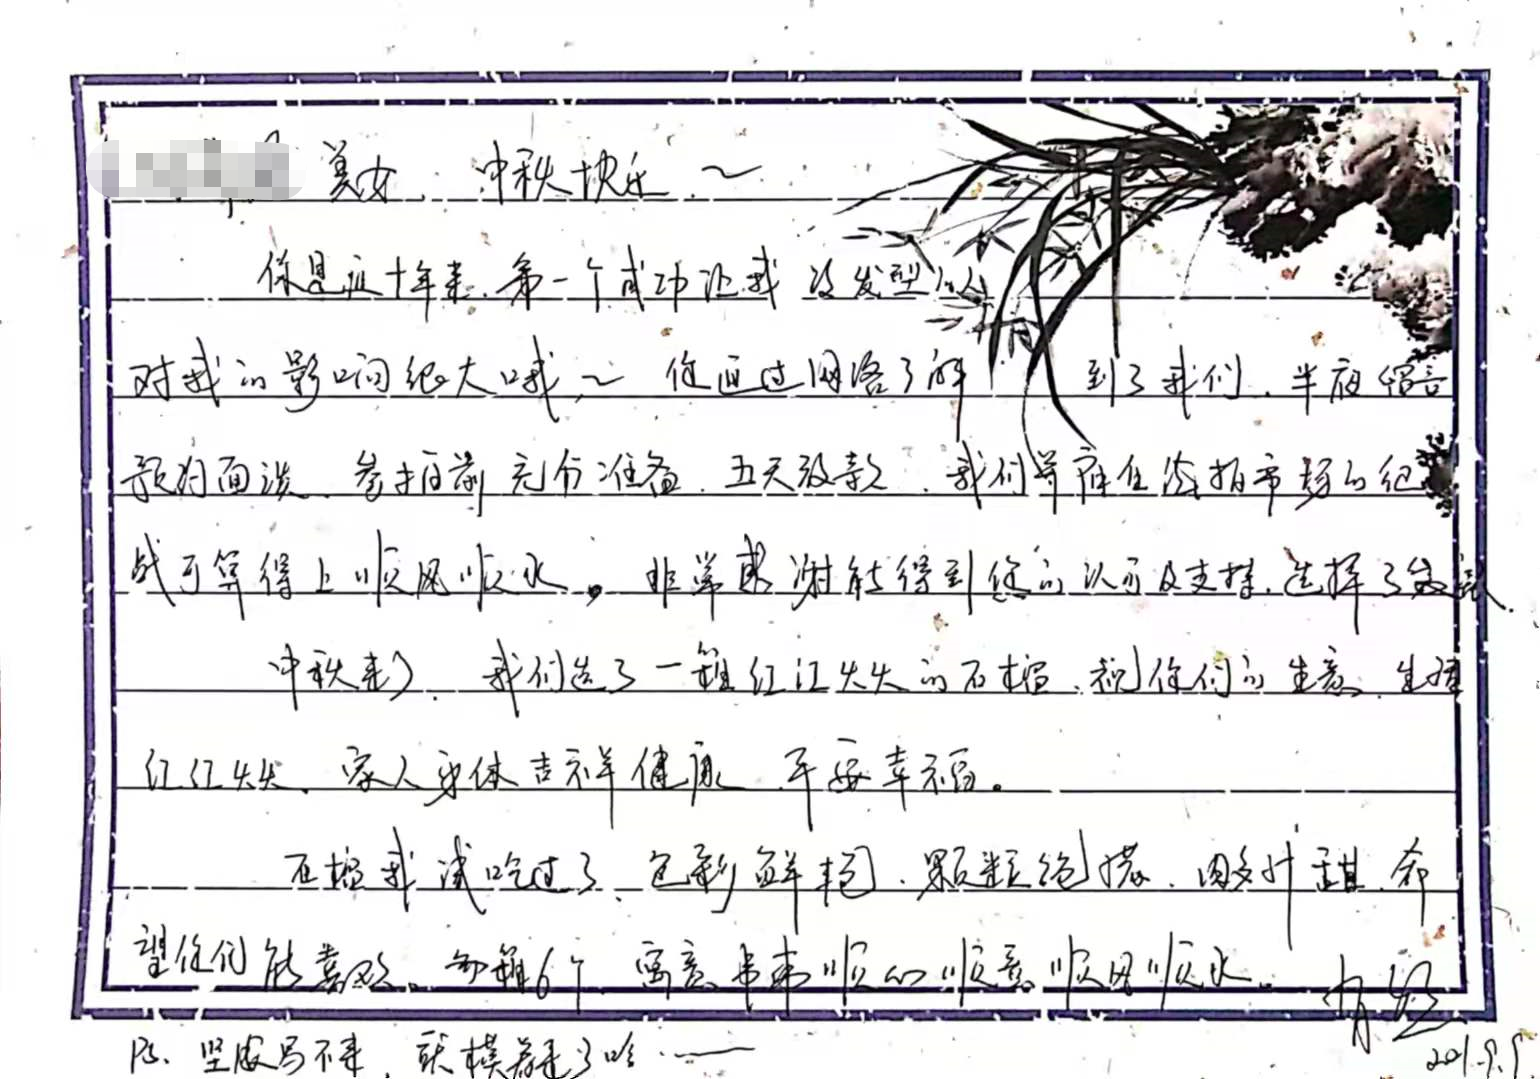 美女，中秋快乐，~
你是近十年来，第一个成功让我没发型的人
对我的影响很大哦，~ 你通过网络了解到了我们，半夜留言
预约面谈，参拍前充分准备，五天放款，我们并肩在法拍市场的征
战可算得上顺风顺水。非常感谢能得到您的认可及支持，选择了我们，
中秋来了，我们选了一箱红红火火的石榴，祝你们的生意、生活
红红火火，家人身体吉祥健康，平安幸福。
石榴我试吃过了，色彩鲜艳，颗粒饱满，肉多汁甜，希
望你们能喜欢。每箱6个，寓意事事顺心顺意顺风顺水。
Ps. 坚 写不来，就模 了哈.——